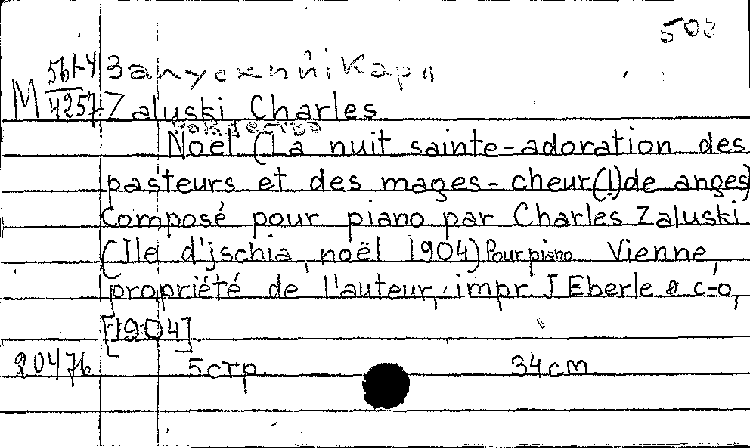 508
М 561-4 Залуский Карл
4257 Zaluski Charles
Noël (La nuit sainte-adoration des
pasteurs et des mages-cheur(!)de anges)
Composé pour piano par Charles Zaluski
(Ile d'jschia, noël 1904) Pour piano Vienne,
propriété de l'auteur, impr J Eberle & c-o,
[1904]
20476 5стр 34cm